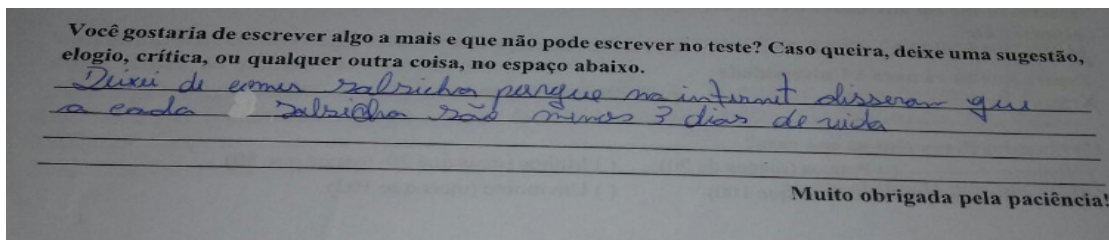 Você gostaria de escrever algo a mais e que não pode escrever no teste? Caso queira, deixe uma sugestão,
elogio, crítica, ou qualquer outra coisa, no espaço abaixo.
Deixei de comer salsicha porque na internet disseram que
a cada salsicha são menos 3 dias de vida
Muito obrigada pela paciência!